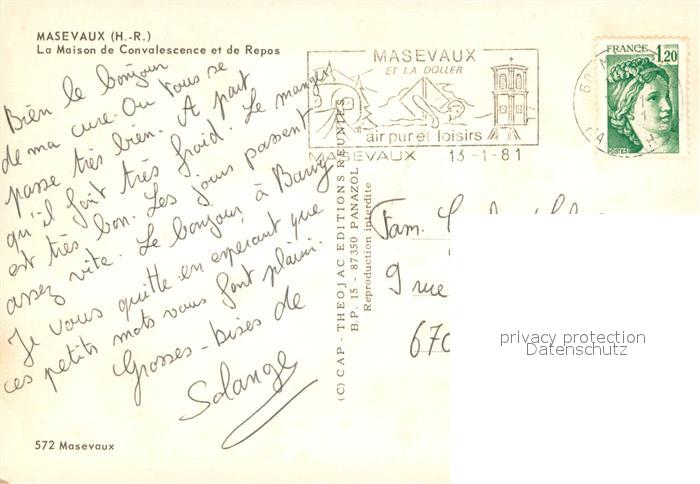 MASEVAUX (H.-R.)
La Maison de Convalescence et de Repos
Bien le bonjour
de ma cure. Ou tous se
passe très bien. A part
qu'il fait très froid. Le manger
est très bon. Les jours passent
assez vite. Le bonjour à
Je vous quitte en esperant que
ces petits mots vous font plaisir.
Grosses-bises de
Solange
572 Masevaux
MASEVAUX
ET LA DOLLER
air pur et loisirs
MASEVAUX 13-1-81
68
FRANCE 1,20
POSTES
(C) CAP - THEOJAC EDITIONS REUNIES
B.P. 15 - 87350 PANAZOL
Reproduction interdite
Fam.
9 rue
670
privacy protection
Datenschutz